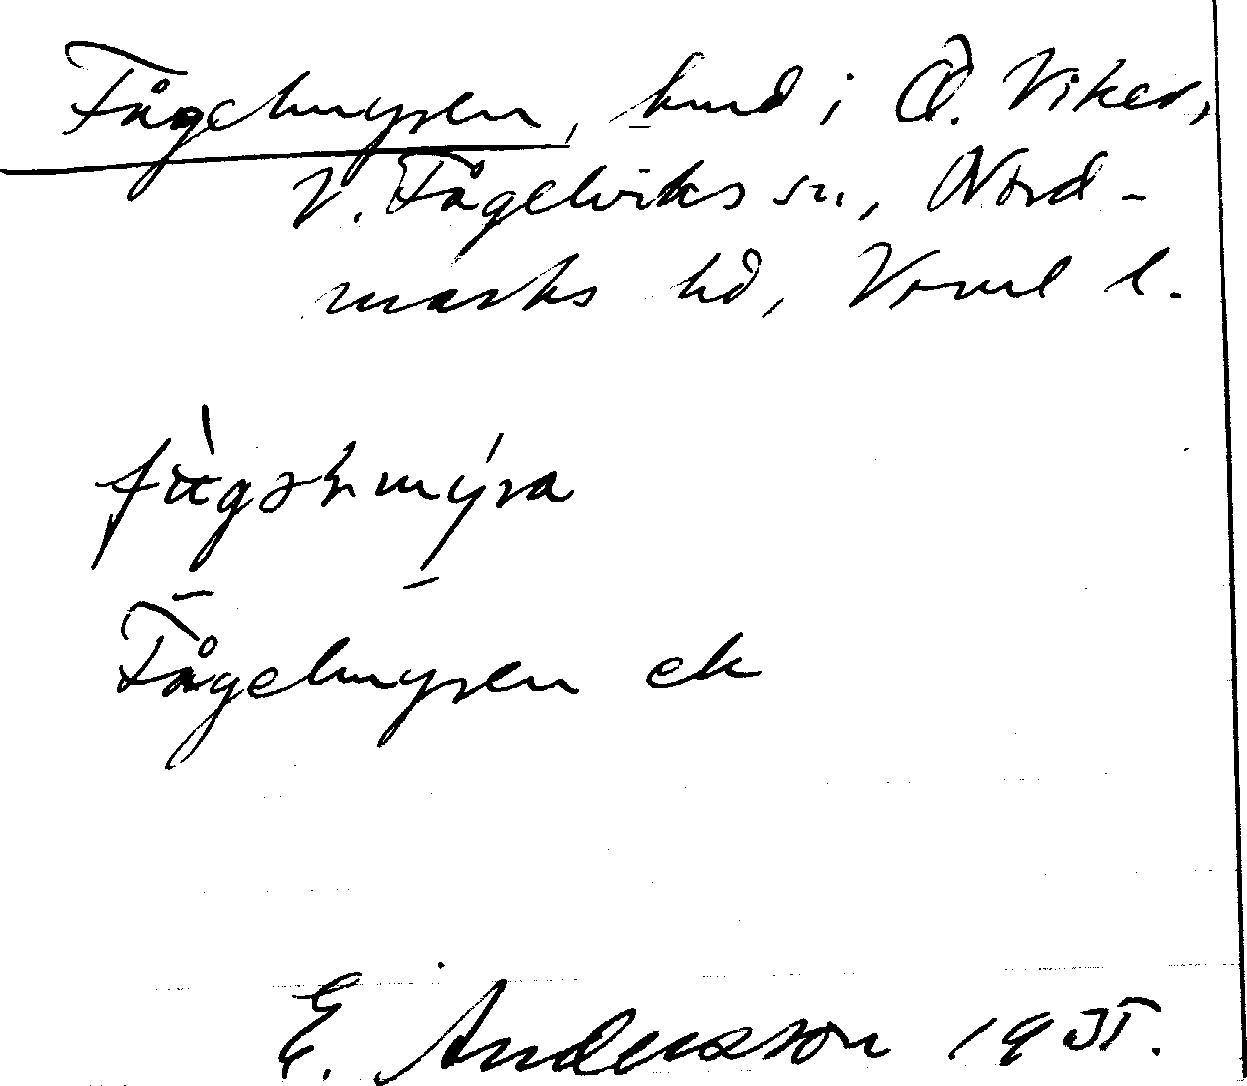 Fågelmyren, hmd i Ö. Viker,
V. Fågelviks sn, Nord-
marks hd, Värml l.
fùgəlmýra
Fågelmyren ek
E. Andersson 1935.